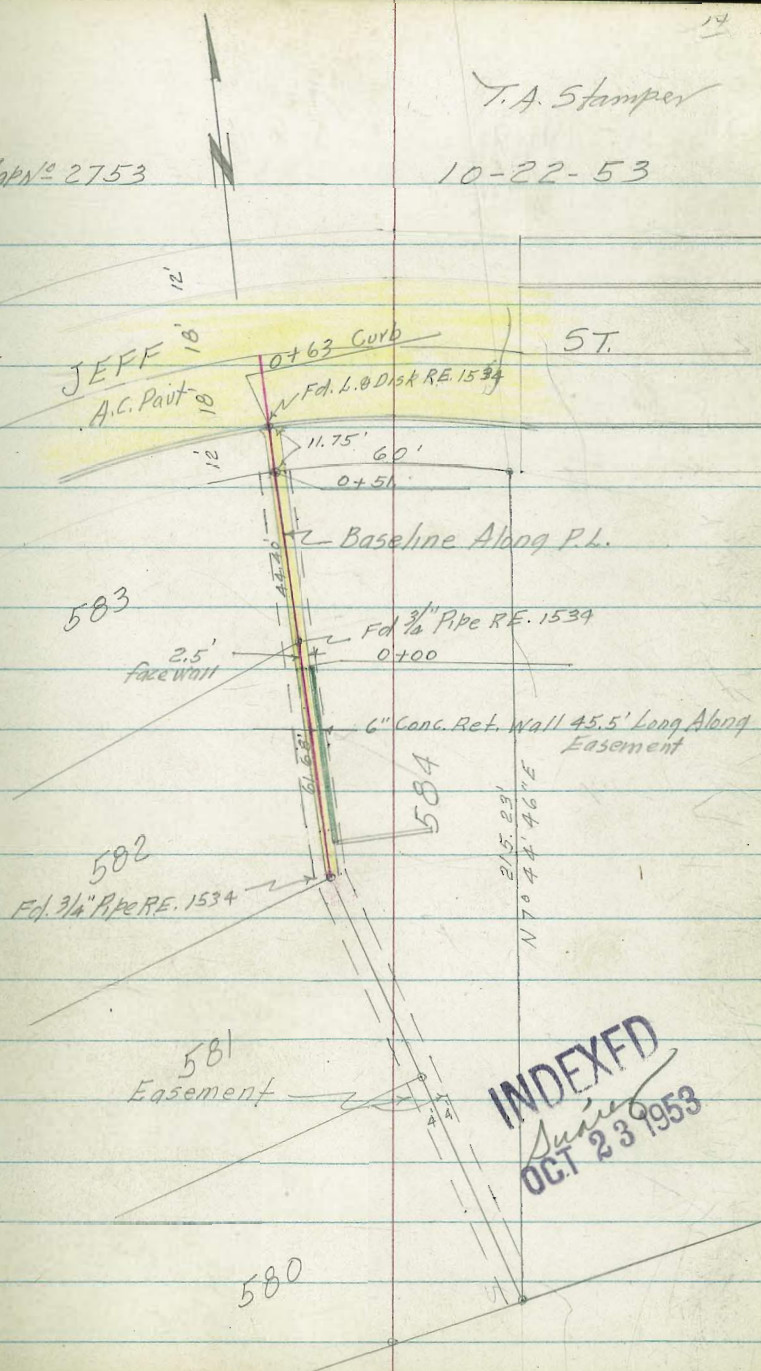 14
T.A. Stamper
Map Nº 2753
10-22-53
12'
18'
JEFF ST.
0+63 Curb
A.C. Pavt
18'
Fd. L.&Disk RE. 1534
12'
11.75'
60'
0+51
Baseline Along P.L.
44.40'
583
Fd 3/4" Pipe RE. 1534
2.5'
face wall
0+00
6" Conc. Ret. Wall 45.5' Long Along
Easement
61.68'
584
215.23'
N 7° 44' 46" E
582
Fd. 3/4" Pipe RE. 1534
581
Easement
4' 4'
INDEXED
Suárez
OCT 23 1953
580